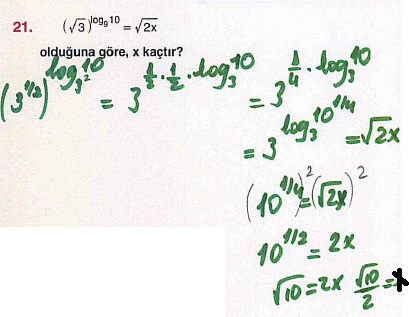 21. (√3)^(log₉10) = √2x
olduğuna göre, x kaçtır?
(3^(1/2))^(log_(3²)10) = 3^(1/2 · 1/2 · log₃10) = 3^(1/4 · log₃10)
= 3^(log₃10^(1/4)) = √2x
(10^(1/4))² = (√2x)²
10^(1/2) = 2x
√10 = 2x √10/2 = x